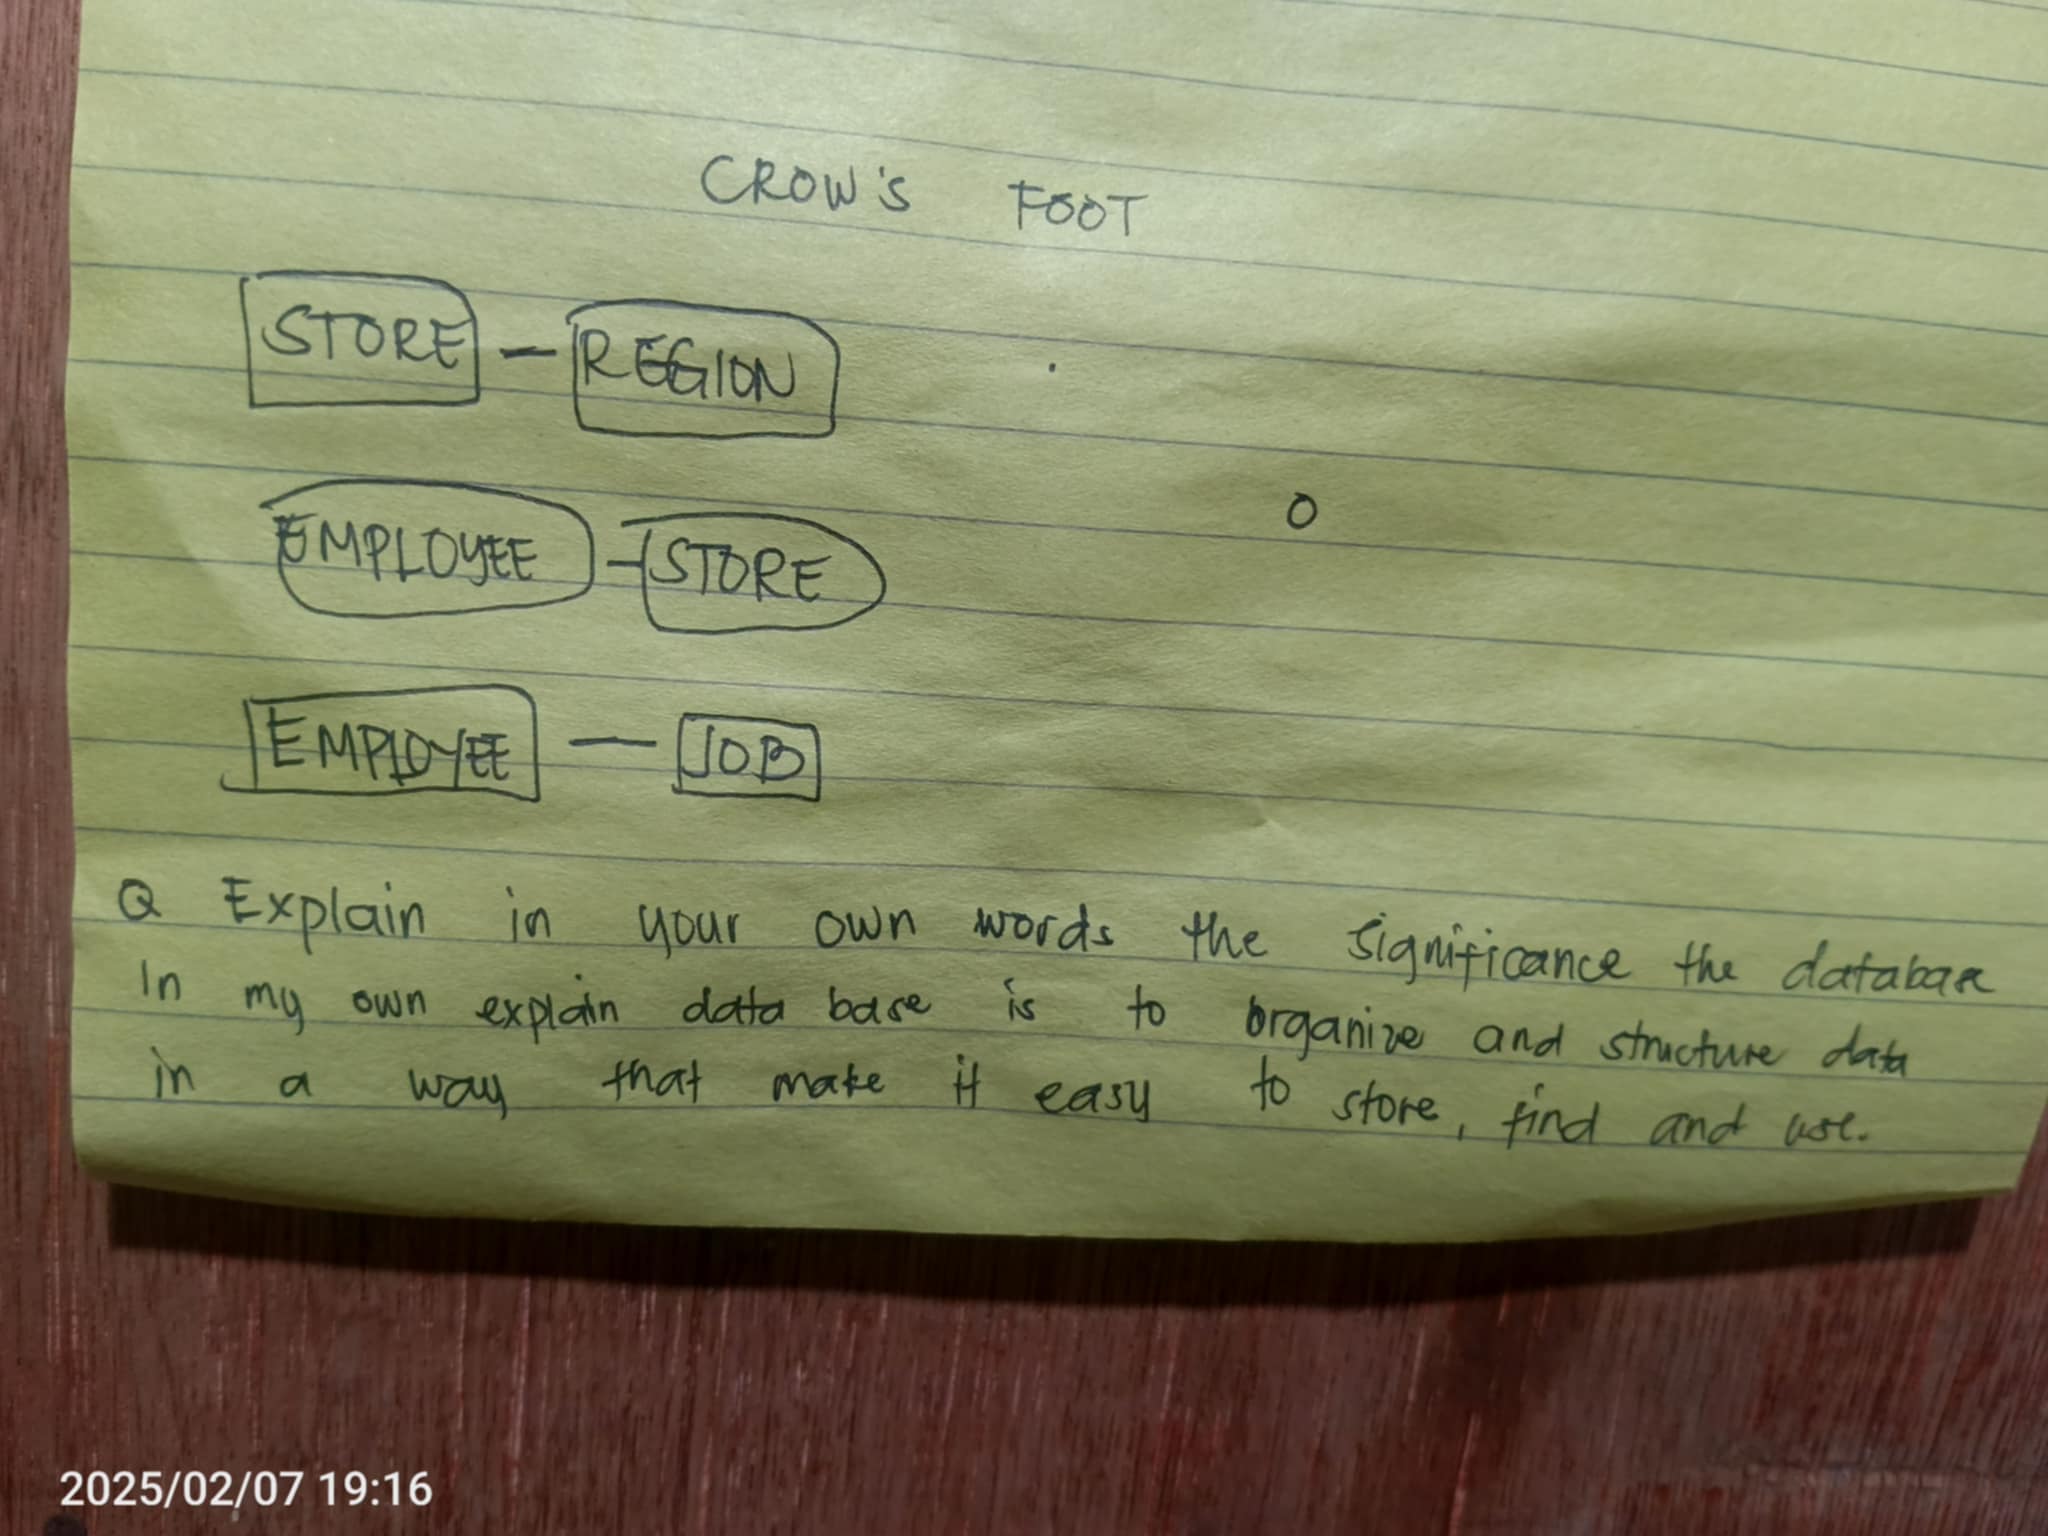 CROW'S FOOT
STORE — REGION
EMPLOYEE — STORE
EMPLOYEE — JOB
Q Explain in your own words the significance the database
In my own explain data base is to organize and structure data
in a way that make it easy to store, find and use.
2025/02/07 19:16